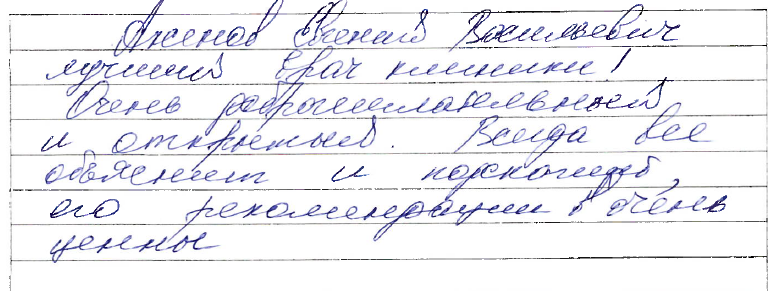 Аксенов Евгений Васильевич
лучший врач клиники!
Очень доброжелательный
и открытый. Всегда все
объяснит и подскажет,
его рекомендации очень
ценны